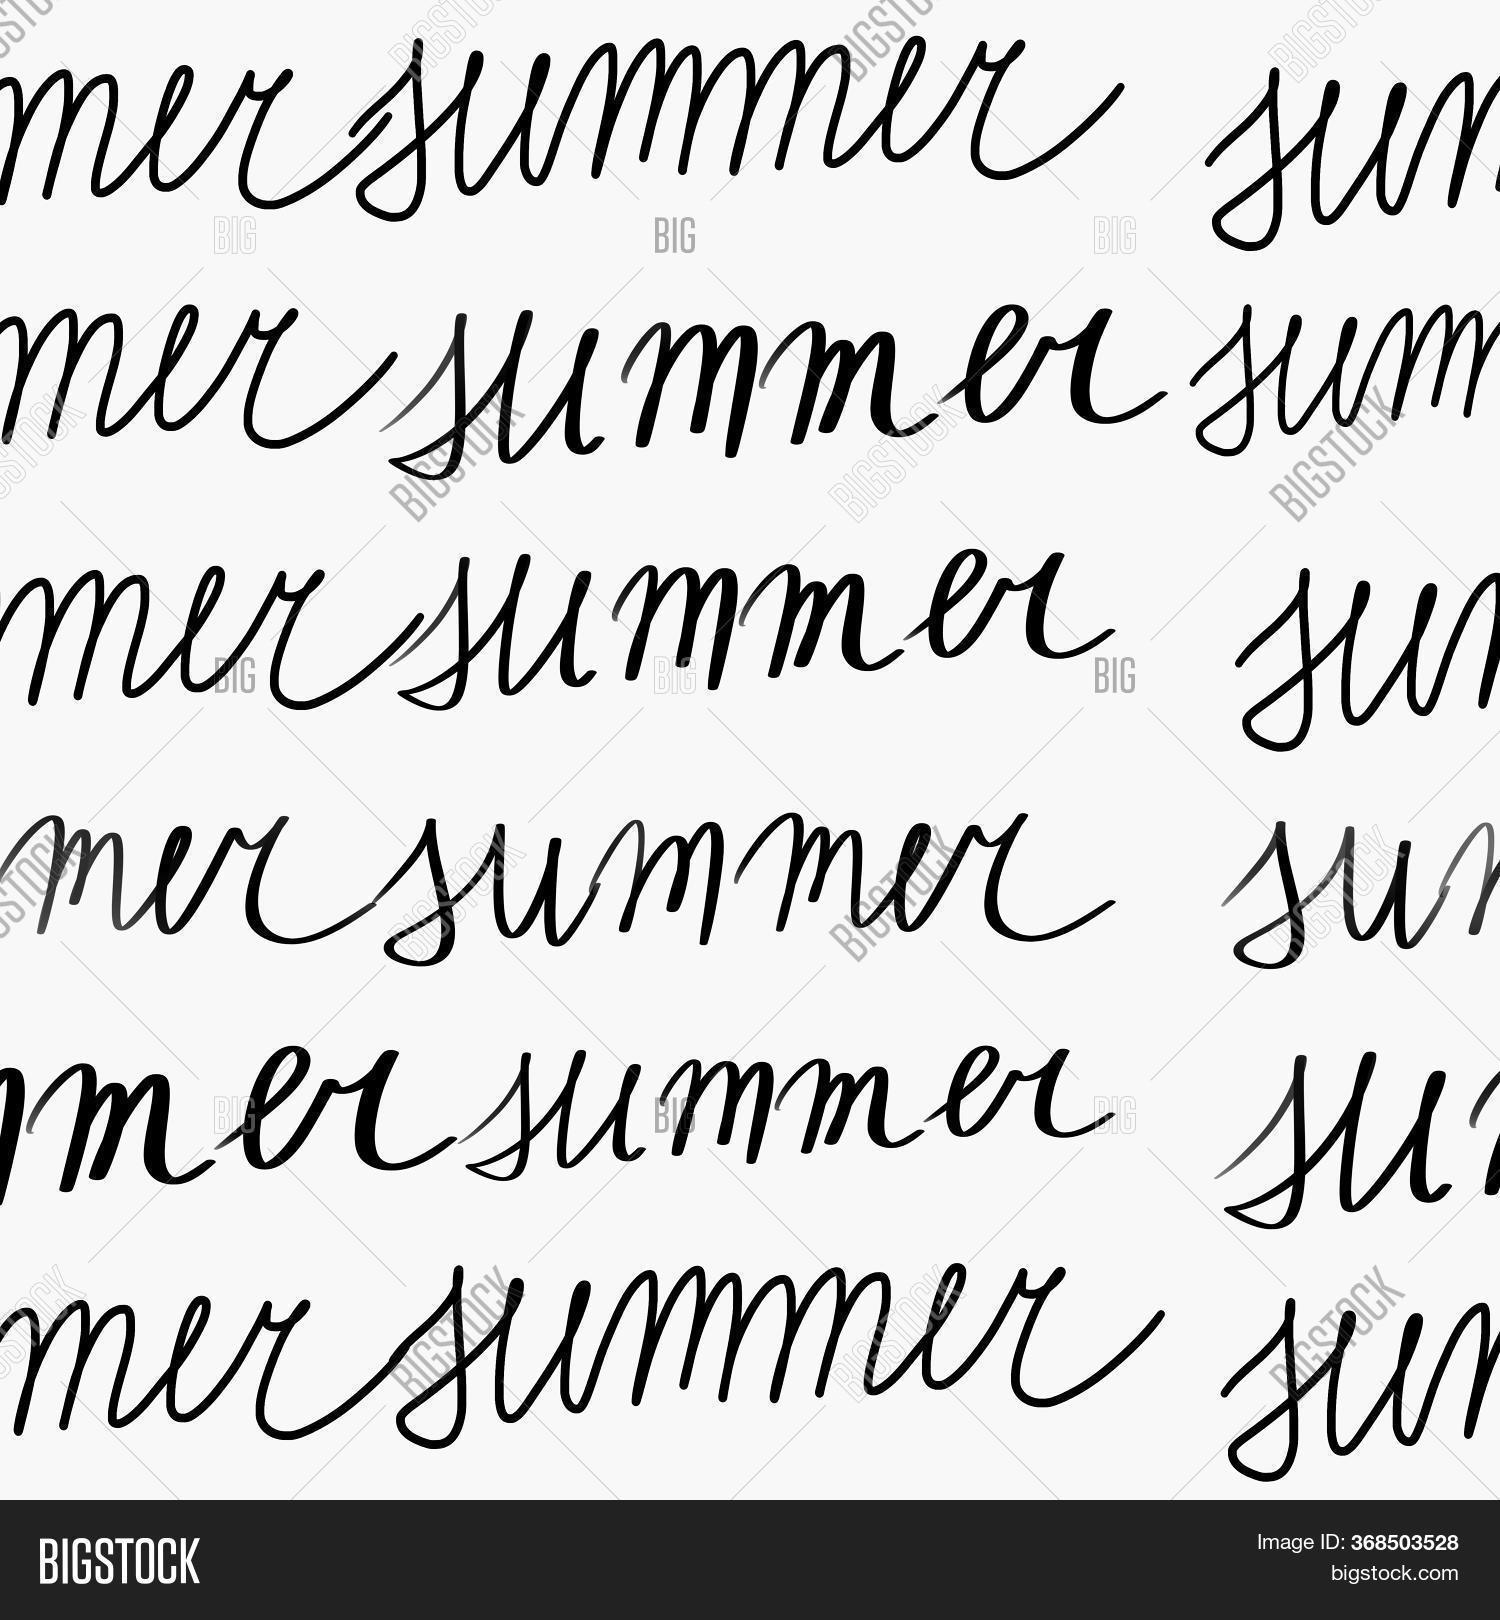 mer summer sum
mer summer summ
mer summer sum
mer summer sum
mmer summer sum
mer summer sum
BIGSTOCK
Image ID: 368503528
bigstock.com